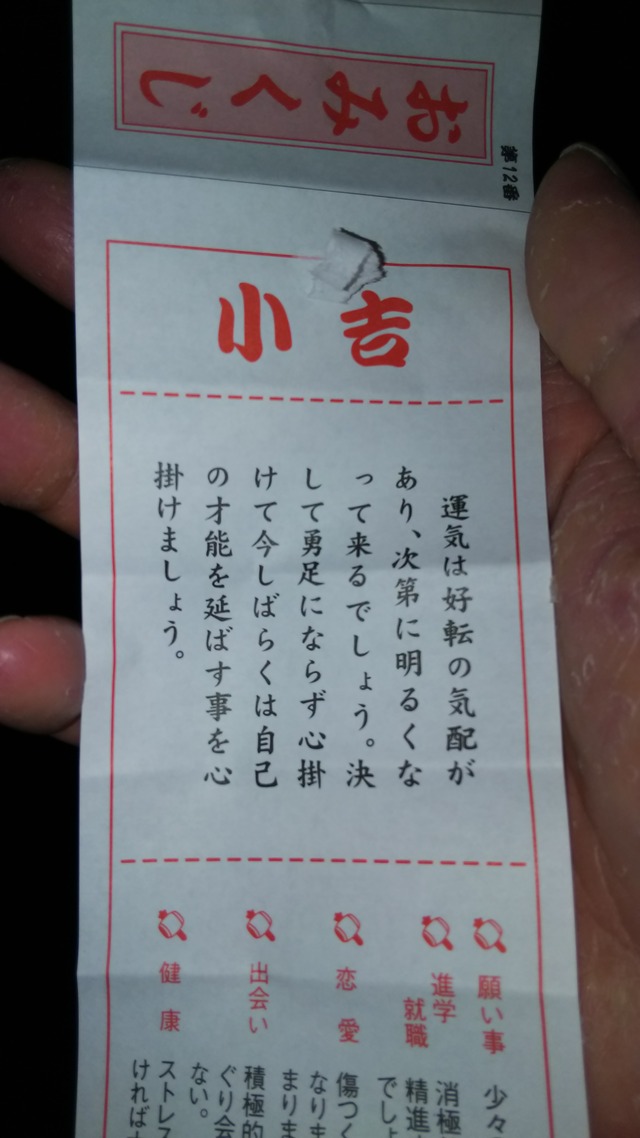 おみくじ
第12番
小吉
運気は好転の気配が
あり、次第に明るくな
って来るでしょう。決
して勇足にならず心掛
けて今しばらくは自己
の才能を延ばす事を心
掛けましょう。
願い事
少々
進学
就職
消極
精進
でしょ
恋愛
傷つく
なりま
まりま
出会い
積極的
ぐり会
ない。
健康
ストレス
ければ